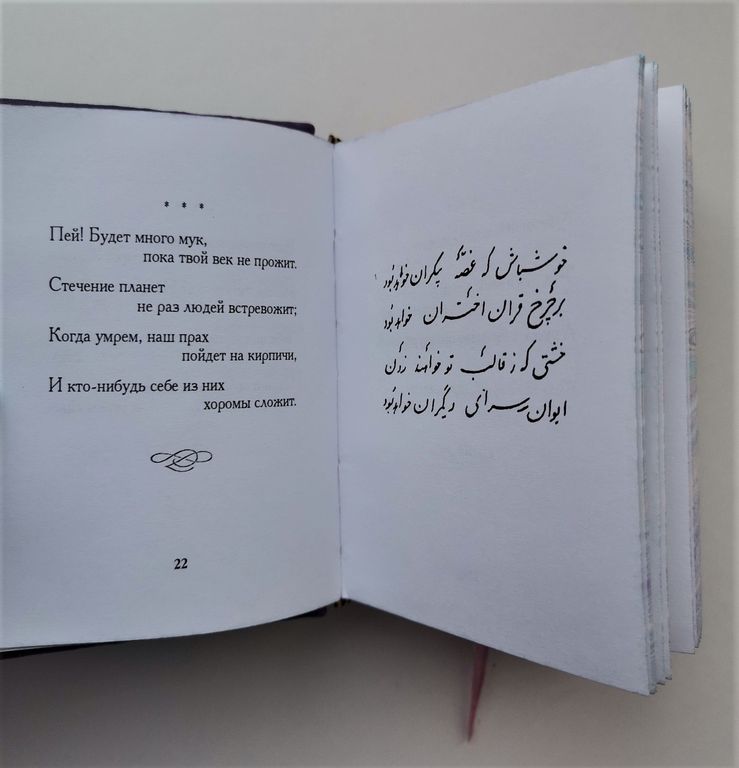 * * *
Пей! Будет много мук,
пока твой век не прожит.
Стечение планет
не раз людей встревожит;
Когда умрем, наш прах
пойдет на кирпичи,
И кто-нибудь себе из них
хоромы сложит.
22
خوش باش که غصّهٔ بیکران خواهد بود
بر چرخ قران اختران خواهد بود
خشتی که ز قالب تو خواهند زدن
ایوان سرای دیگران خواهد بود